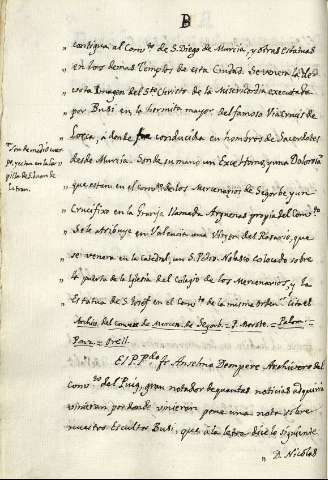 B
" contigua al Conv.to de S. Diego de Murcia, y otras estatuas
" en los demas Templos de esta Ciudad. Se venera la de-
" vota Imagen del S.to Christo de la Misericordia executada
" por Busi en la hermita mayor, del famoso Viacrucis de
" Lorca, a donde fue conducida en hombros de Sacerdotes
" desde Murcia. Son de su mano un Ecce Homo, y una Dolorosa
" que estan en el Conv.to de los Mercenarios de Segorbe y un
" Crucifixo en la Granja llamada Arguinas propia del Conv.to
" Se le atribuye en Valencia una Virgen del Rosario, que
" se venera en la Catedral, un S. Pedro Nolasco colocado sobre
" la puerta de la Iglesia del Colegio de los Mercenarios, y la
" Estatua de S. Josef en el Conv.to de la misma orden.
Archivo del Convento de Merced. de Segorb. = P. = Palom. =
Ponz = Orell.
El P. P.do fr. Anselmo Dempere Archivero del
Conv.to del Puig, gran notador de quantas noticias adquiria
vinieran por donde vinieran pone una nota sobre
nuestro Escultor Busi, que a la letra dice lo siguiente
" D. Nicolas
Son de medio cuer-
po, y estan en la Ca-
pilla de S. Juan de
Letran.